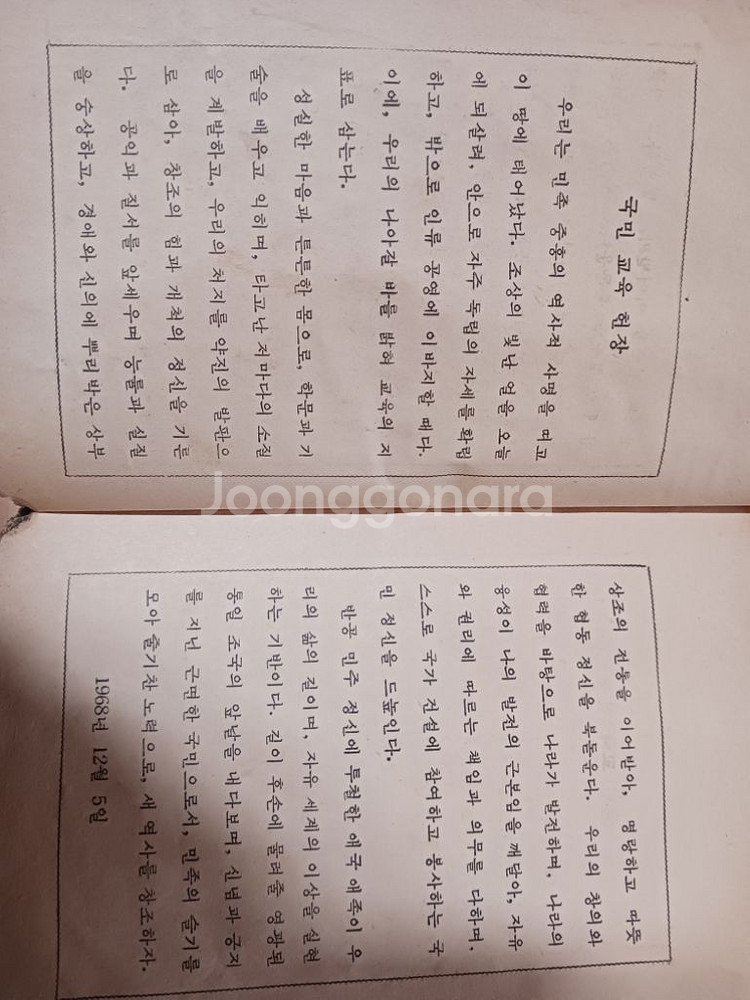 국민 교육 헌장
우리는 민족 중흥의 역사적 사명을 띠고
이 땅에 태어났다. 조상의 빛난 얼을 오늘
에 되살려, 안으로 자주 독립의 자세를 확립
하고, 밖으로 인류 공영에 이바지할 때다.
이에, 우리의 나아갈 바를 밝혀 교육의 지
표로 삼는다.
성실한 마음과 튼튼한 몸으로, 학문과 기
술을 배우고 익히며, 타고난 저마다의 소질
을 계발하고, 우리의 처지를 약진의 발판으
로 삼아, 창조의 힘과 개척의 정신을 기른
다. 공익과 질서를 앞세우며 능률과 실질
을 숭상하고, 경애와 신의에 뿌리박은 상부
상조의 전통을 이어받아, 명랑하고 따뜻
한 협동 정신을 북돋운다. 우리의 창의와
협력을 바탕으로 나라가 발전하며, 나라의
융성이 나의 발전의 근본임을 깨달아, 자유
와 권리에 따르는 책임과 의무를 다하며,
스스로 국가 건설에 참여하고 봉사하는 국
민 정신을 드높인다.
반공 민주 정신에 투철한 애국 애족이 우
리의 삶의 길이며, 자유 세계의 이상을 실현
하는 기반이다. 길이 후손에 물려줄 영광된
통일 조국의 앞날을 내다보며, 신념과 긍지
를 지닌 근면한 국민으로서, 민족의 슬기를
모아 줄기찬 노력으로, 새 역사를 창조하자.
1968년 12월 5일
Joonggonara